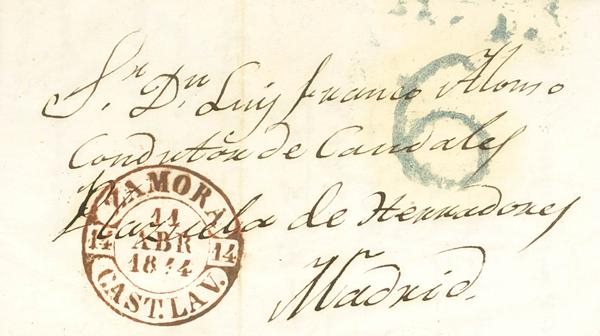 Sr. Dn. Luis Franco Alonso
6
Condutór de Caudales
Plazuela de Herradores
Madrid.
ZAMORA
14 11 ABR 1844 14
CAST. LA V.